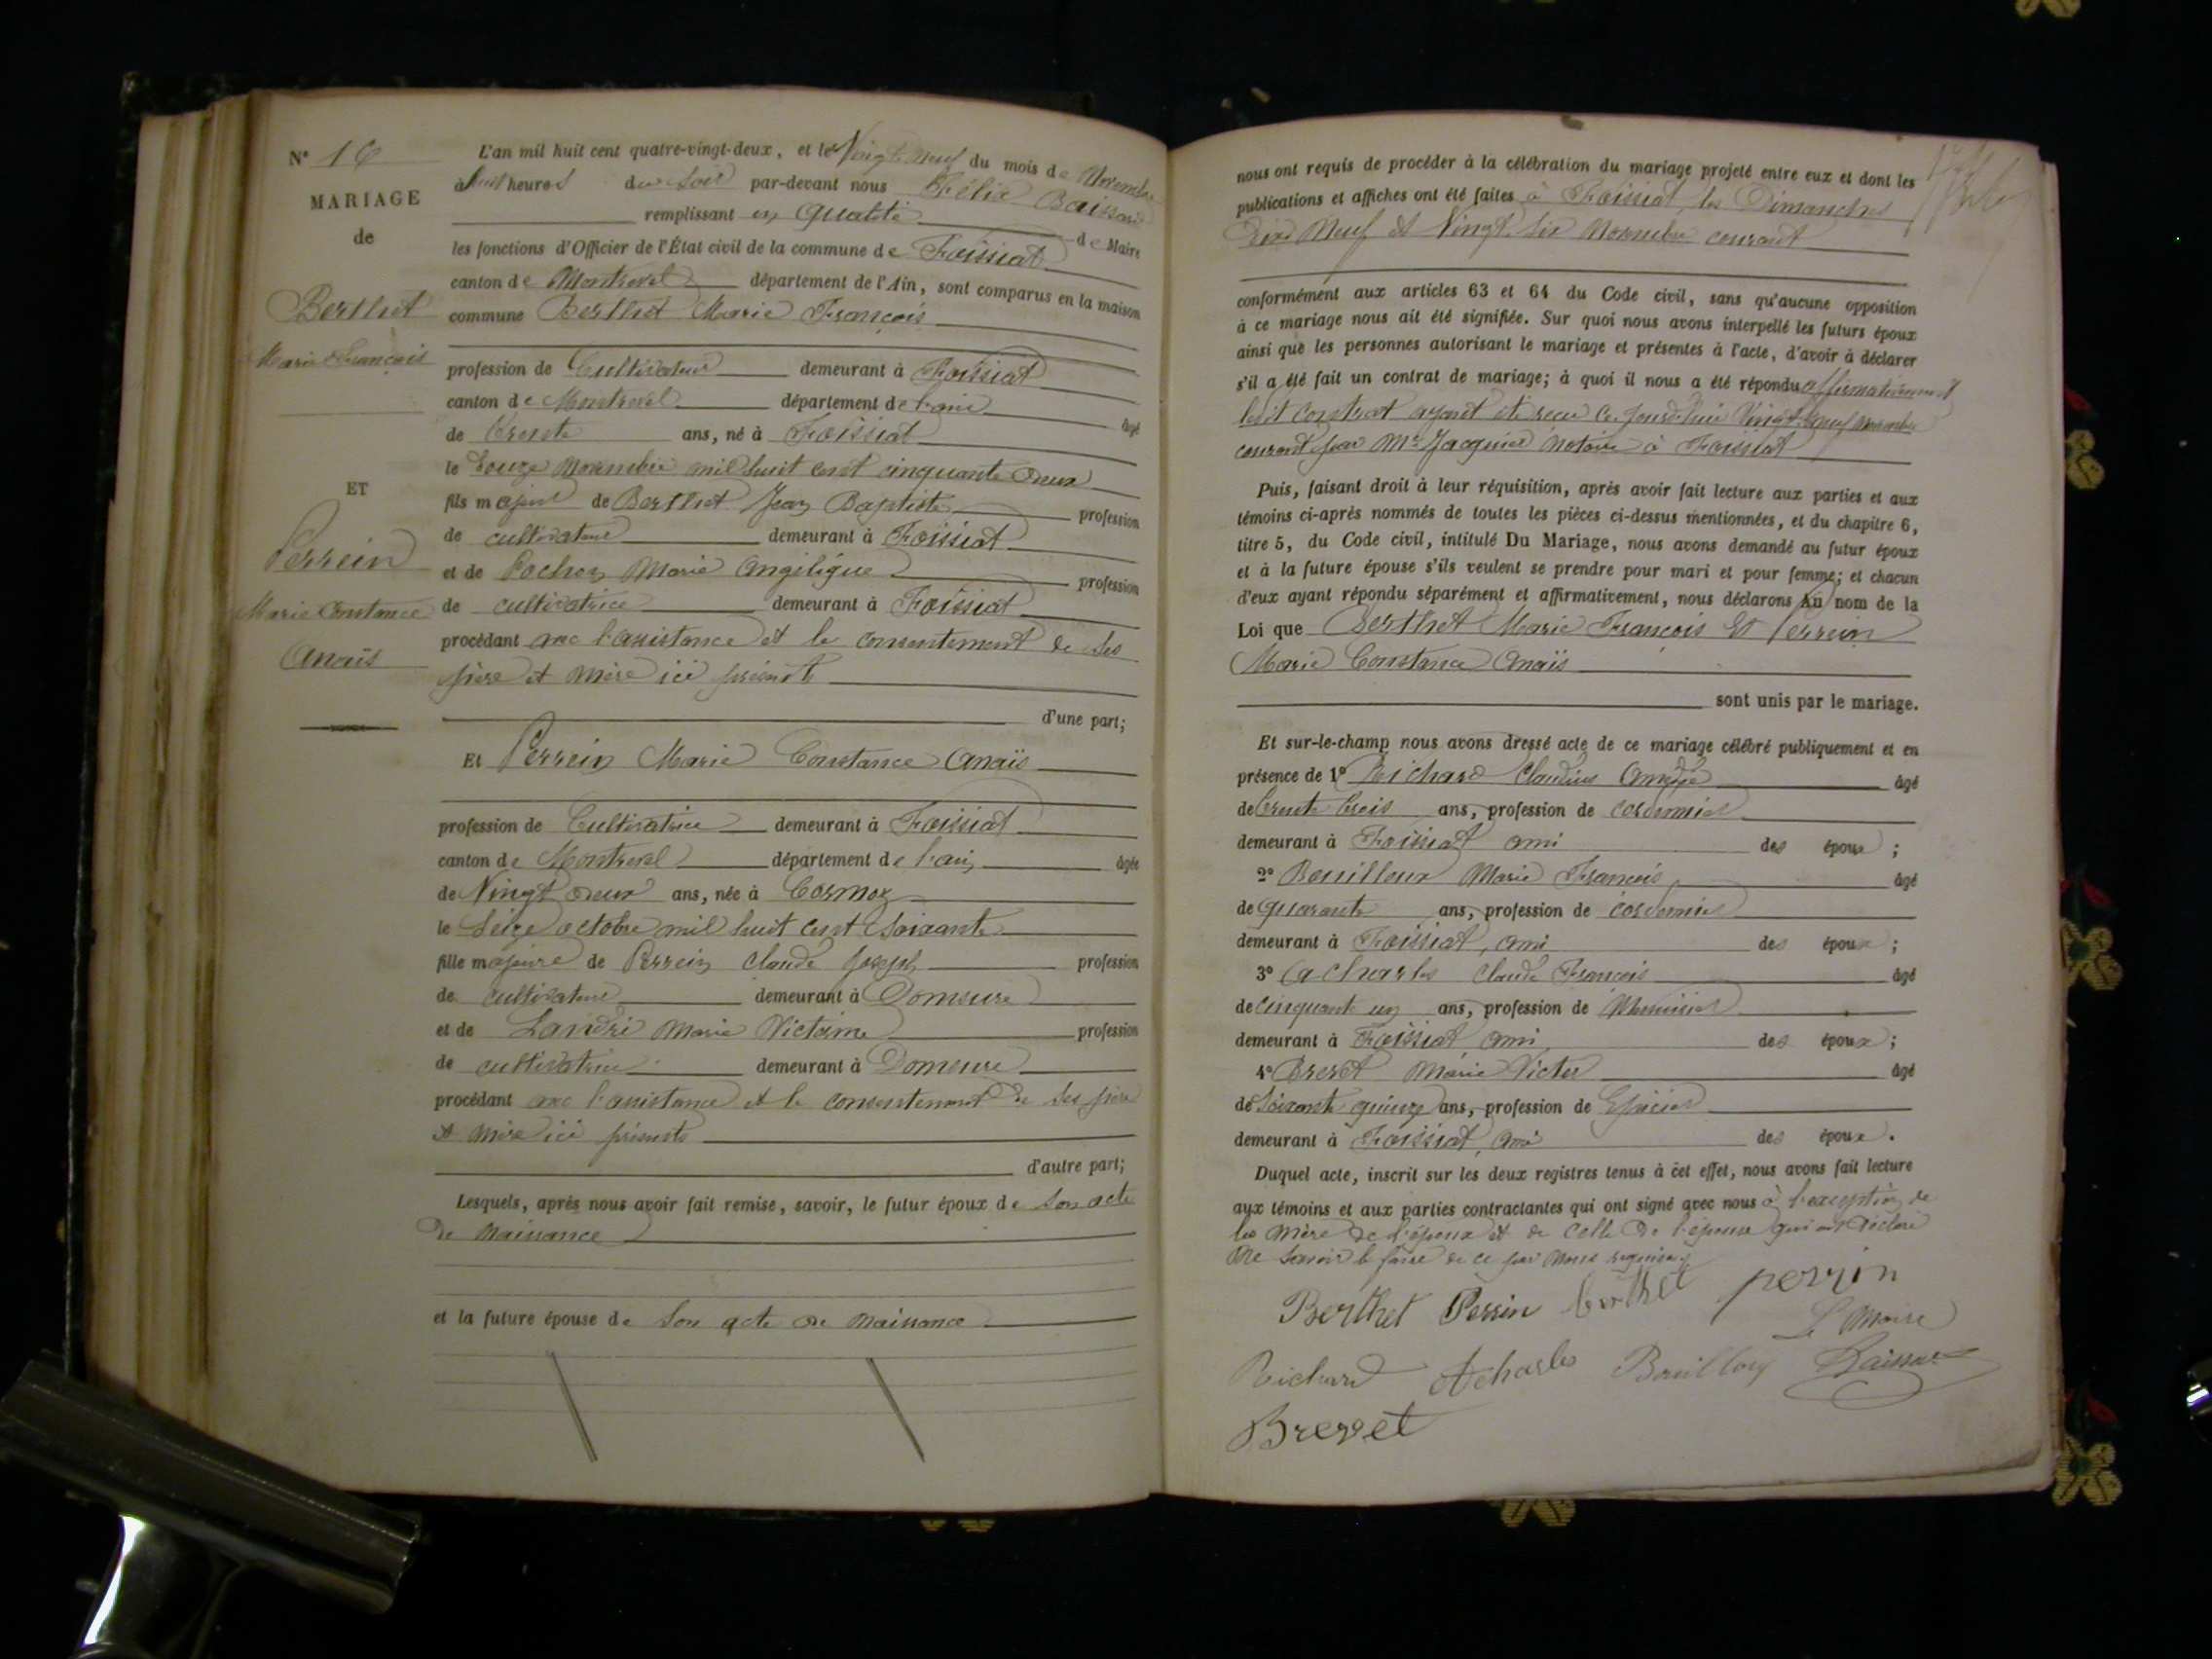 N° 16
MARIAGE
de
Berthet
Marie François
ET
Perrein
Marie Constance
Anaïs
L'an mil huit cent quatre-vingt-deux, et le Vingt Neuf du mois de Novembre
à huit heures du soir par-devant nous Félix Baissard
remplissant en qualité de Maire
les fonctions d'Officier de l'État civil de la commune de Foissiat
canton de Montrevel département de l'Ain, sont comparus en la maison
commune Berthet Marie François
profession de Cultivateur demeurant à Foissiat
canton de Montrevel département de l'ain âgé
de trente ans, né à Foissiat
le Douze Novembre mil huit cent cinquante Deux
fils majeur de Berthet Jean Baptiste profession
de cultivateur demeurant à Foissiat
et de Pochon Marie Angélique profession
de cultivatrice demeurant à Foissiat
procédant avec l'assistance et le consentement de ses
père et mère ici présents
d'une part;
Et Perrein Marie Constance Anaïs
profession de Cultivatrice demeurant à Foissiat
canton de Montrevel département de l'ain âgée
de Vingt deux ans, née à Cormoz
le Seize octobre mil huit cent soixante
fille majeure de Perrein Claude Joseph profession
de cultivateur demeurant à Domsure
et de Landri Marie Victoire profession
de cultivatrice demeurant à Domsure
procédant avec l'assistance et le consentement de ses père
et mère ici présents
d'autre part;
Lesquels, après nous avoir fait remise, savoir, le futur époux de Son acte
de Naissance
et la future épouse de Son acte de Naissance
nous ont requis de procéder à la célébration du mariage projeté entre eux et dont les
publications et affiches ont été faites à Foissiat les Dimanches
Dix Neuf et Vingt Six Novembre courant
conformément aux articles 63 et 64 du Code civil, sans qu'aucune opposition
à ce mariage nous ait été signifiée. Sur quoi nous avons interpellé les futurs époux
ainsi que les personnes autorisant le mariage et présentes à l'acte, d'avoir à déclarer
s'il a été fait un contrat de mariage; à quoi il nous a été répondu affirmativement
ledit contrat ayant été reçu ce jourd'hui Vingt Neuf novembre
courant par Me Jacquier notaire à Foissiat
Puis, faisant droit à leur réquisition, après avoir fait lecture aux parties et aux
témoins ci-après nommés de toutes les pièces ci-dessus mentionnées, et du chapitre 6,
titre 5, du Code civil, intitulé Du Mariage, nous avons demandé au futur époux
et à la future épouse s'ils veulent se prendre pour mari et pour femme; et chacun
d'eux ayant répondu séparément et affirmativement, nous déclarons Au nom de la
Loi que Berthet Marie François Et Perrein
Marie Constance Anaïs
sont unis par le mariage.
Et sur-le-champ nous avons dressé acte de ce mariage célébré publiquement et en
présence de 1° Richard Claudius Amédée âgé
de trente trois ans, profession de cordonnier
demeurant à Foissiat ami des époux;
2° Bouilloux Marie François âgé
de quarante ans, profession de cordonnier
demeurant à Foissiat, ami des époux;
3° Acharles Claude François âgé
de cinquante un ans, profession de Menuisier
demeurant à Foissiat, ami des époux;
4° Brevet Marie Victor âgé
de Soixante quinze ans, profession de Epicier
demeurant à Foissiat, ami des époux.
Duquel acte, inscrit sur les deux registres tenus à cet effet, nous avons fait lecture
aux témoins et aux parties contractantes qui ont signé avec nous à l'exception de
la mère de l'époux et de celle de l'épouse qui ont déclaré
Ne savoir le faire de ce par Nous requises
Berthet Perrin berthet perrin
Le Maire
Richard Acharles Bouilloux Baissard
Brevet